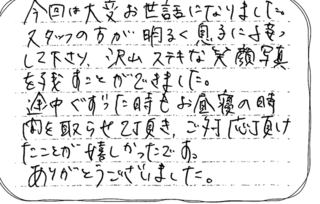 今回は大変お世話になりました。
スタッフの方が明るく息子に接
して下さり、沢山ステキな笑顔写真
を残すことができました。
途中ぐずった時もお昼寝の時
間を取らせて頂き、ご対応頂け
たことが嬉しかったです。
ありがとうございました。